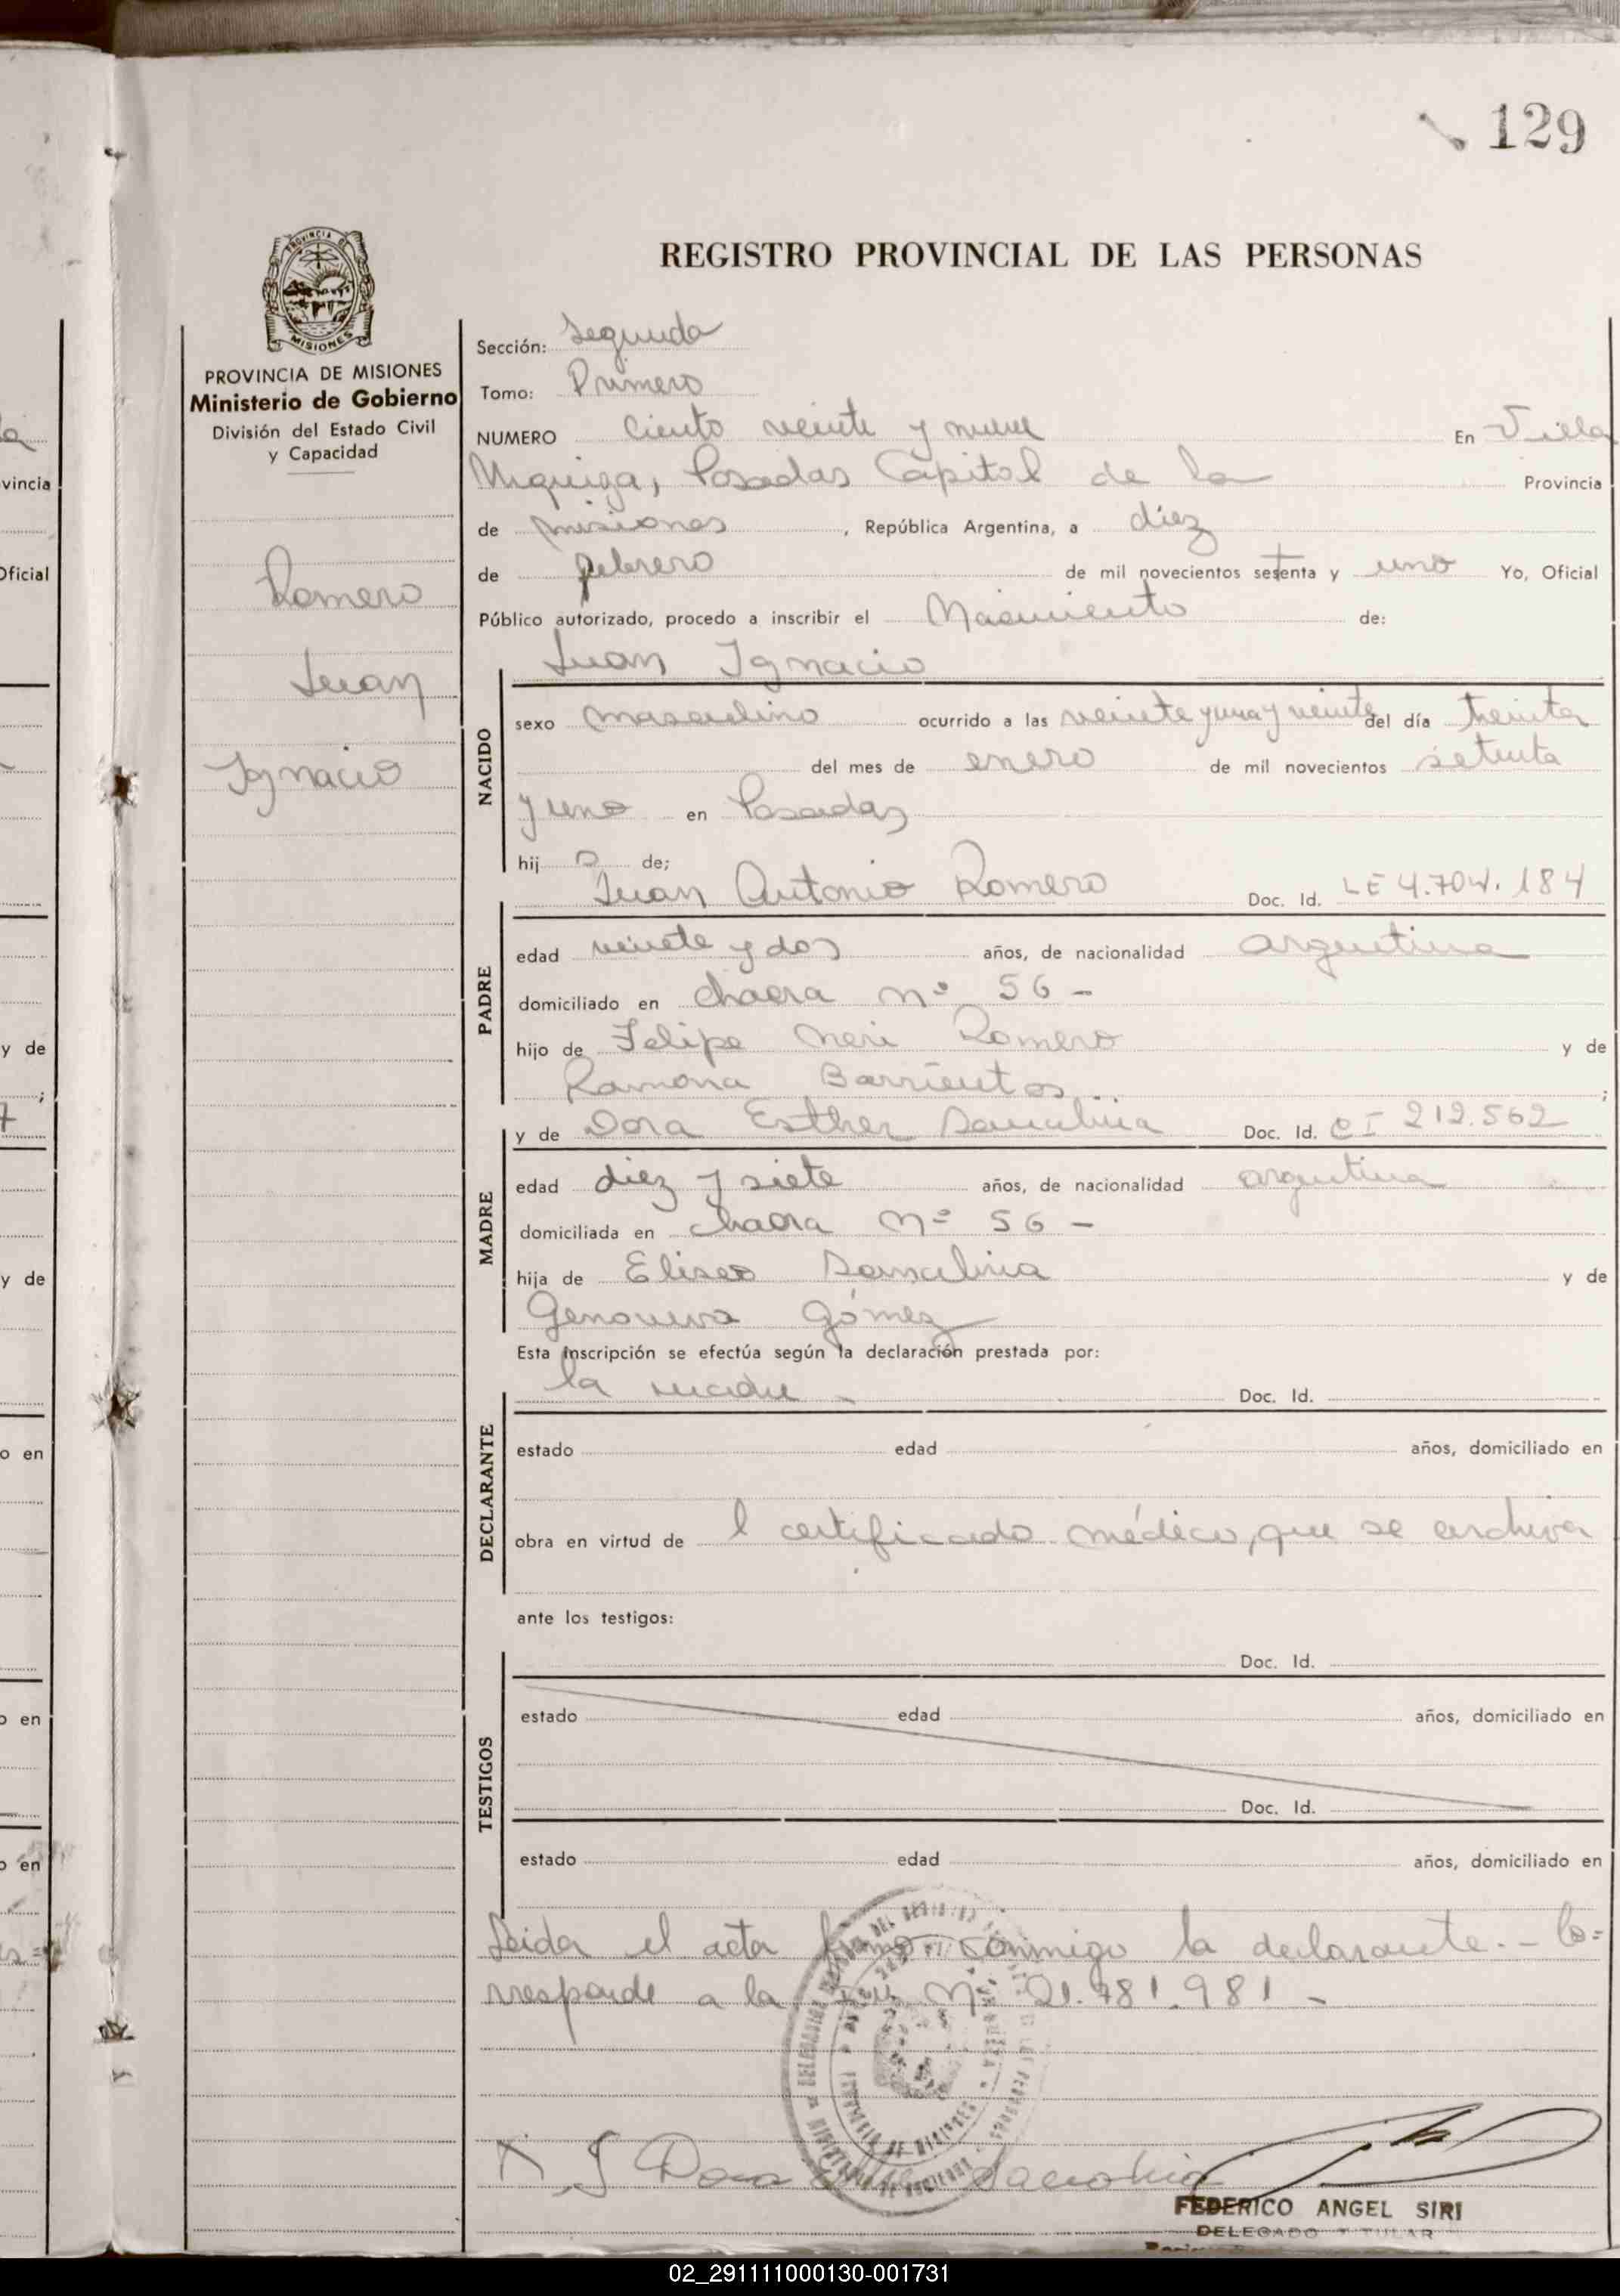 129
REGISTRO PROVINCIAL DE LAS PERSONAS
PROVINCIA DE MISIONES
Ministerio de Gobierno
División del Estado Civil
y Capacidad
Romero
Juan
Ignacio
Sección: Segunda
Tomo: Primero
NUMERO ciento veinte y nueve En Villa
Urquiza, Posadas Capital de la Provincia
de misiones, República Argentina, a diez
de febrero de mil novecientos sesenta y uno Yo, Oficial
Público autorizado, procedo a inscribir el Nacimiento de:
Juan Ignacio
NACIDO
sexo masculino ocurrido a las veinte y una y veinte del día treinta
del mes de enero de mil novecientos setenta
y uno en Posadas
hij o de;
Juan Antonio Romero Doc. Id. LE 4.704.184
PADRE
edad veinte y dos años, de nacionalidad argentina
domiciliado en chacra nº 56 -
hijo de Felipe Neri Romero y de
Ramona Barrientos ;
y de Dora Esther Doc. Id. CI 212.562
MADRE
edad diez y siete años, de nacionalidad argentina
domiciliada en chacra nº 56 -
hija de Eliseo y de
Genoveva Gómez
Esta inscripción se efectúa según la declaración prestada por:
la madre - Doc. Id.
DECLARANTE
estado edad años, domiciliado en
obra en virtud de l certificado médico, que se archiva
ante los testigos:
Doc. Id.
TESTIGOS
estado edad años, domiciliado en
Doc. Id.
estado edad años, domiciliado en
Leida el acta firma conmigo la declarante.- Co=
rresponde a la Nº 21.781.981 -
Dora
FEDERICO ANGEL SIRI
DELEGADO TITULAR
02_291111000130-001731